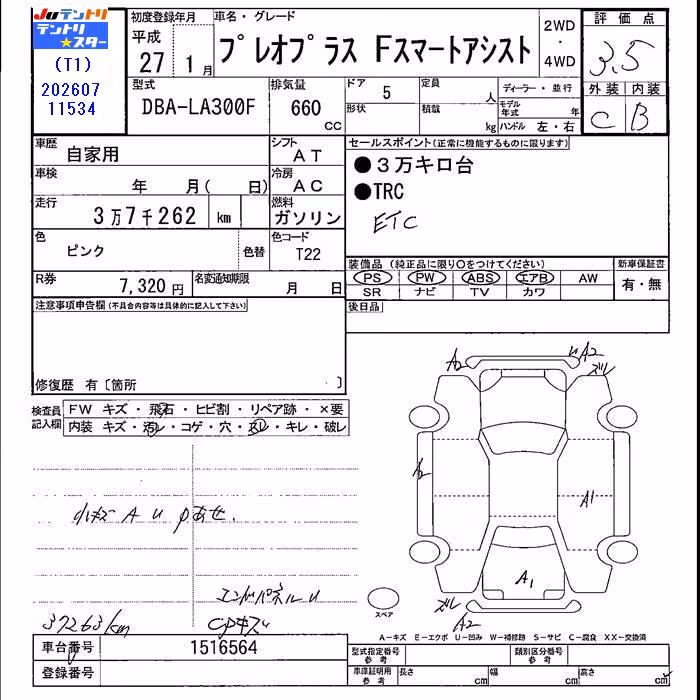 JUテントリ
テントリ
★スター
(T1)
202607
11534
初度登録年月
平成
27 1月
車名・グレード
プレオプラス Fスマートアシスト
2WD
・
4WD
評価点
3.5
外装 内装
C B
型式
DBA-LA300F
排気量
660
CC
ドア
5
形状
定員
人
積載
kg
ディーラー・並行
モデル年式 年
ハンドル 左・右
車歴
自家用
シフト
AT
車検
年 月( 日)
冷房
AC
走行
3万7千262 km
燃料
ガソリン
色
ピンク
色替
色コード
T22
R券
7,320円
名変通知期限
月 日
セールスポイント(正常に機能するものに限ります)
●3万キロ台
●TRC
ETC
装備品 (純正品に限り○をつけてください)
PS PW ABS エアB AW
SR ナビ TV カワ
新車保証書
有・無
後日品
注意事項申告欄(不具合内容等は具体的に記入して下さい)
修復歴 有〔箇所 〕
検査員
記入欄
FW キズ・飛石・ヒビ割・リペア跡・×要
内装 キズ・汚レ・コゲ・穴・スレ・キレ・破レ
小キズ A U
エンドパネルU
37263km
A2
A2
ズレ
A2
A1
A1
ズレ
A2
スペア
A-キズ E-エクボ U-凹み W-補修跡 S-サビ C-腐食 XX-交換済
車台番号
1516564
登録番号
型式指定番号
参考
類別区分番号
参考
車庫証明用
参考
長さ cm
幅 cm
高さ cm